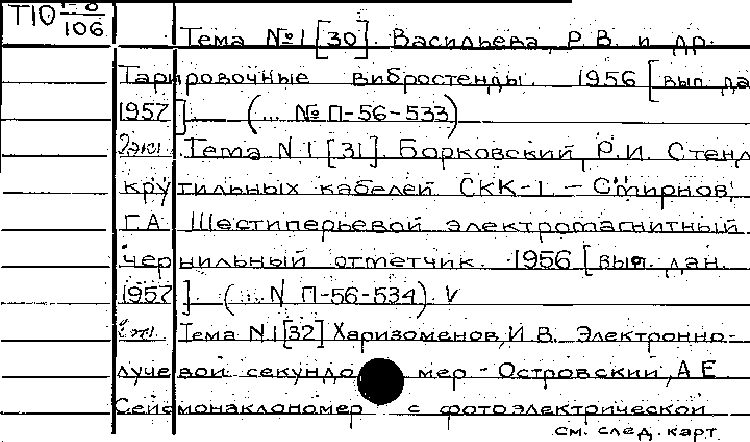 Т10
106
Тема №1 [30]. Васильева, Р.В. и др.
Тарировочные вибростенды. 1956 [вып. да
1957]. (... № П-56-533)
Тема N1 [31]. Борковский, Р.И. Стенд
крутильных кабелей СКК-1 - Смирнов,
Г.А. Шестиперьевой электромагнитный
чернильный отметчик. 1956 [вып. дан.
1957]. (... N П-56-534). V
Тема N1 [32] Харизоменов, И.В. Электронно-
лучевой секундо мер - Островский, А.Е.
Сейсмонаклономер с фотоэлектрической
см. след. карт.